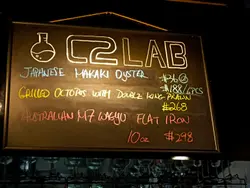 C2 LAB
JAPANESE MAKAKI OYSTER $36@
$188/6PCS
GRILLED OCTOPUS WITH DOUBLE KING PRAWN
$268
AUSTRALIAN M7 WAGYU FLAT IRON
10oz $298